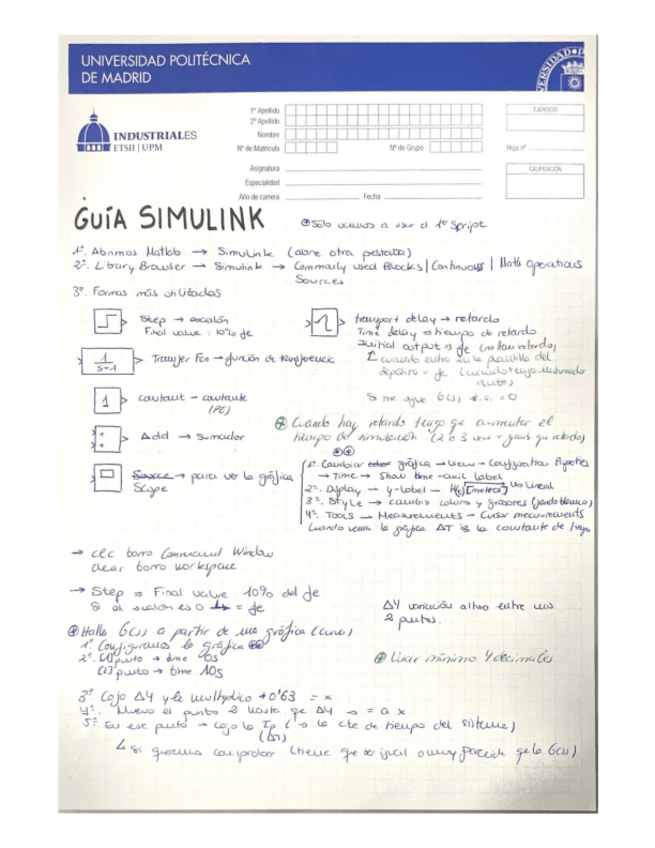 UNIVERSIDAD POLITÉCNICA
DE MADRID
INDUSTRIALES
ETSII | UPM
1º Apellido
2º Apellido
Nombre
Nº de Matrícula
Nº de Grupo
Asignatura
Especialidad
Año de carrera
Fecha
EJERCICIO
Hoja nº
CALIFICACIÓN
GUÍA SIMULINK
Sólo vamos a usar el 1er Script
1º. Abrimos Matlab → Simulink (abre otra pestaña)
2º. Library Browser → Simulink → Commonly used Blocks | Continuous | Math Operations
Sources
3º. Formas más utilizadas
Step → escalón
Final value: 10% fe
1
s+1
Transfer Fcn → función de transferencia
1
constant - constante
(PE)
+
+
Add → sumador
Source → para ver la gráfica
Scope
transport delay → retardo
Time delay ⇒ tiempo de retardo
Initial output ⇒ fe (no hay retardo)
cuando entro en la plantilla del
deposito = fe
Si me sigue G(s) = 0
⊕ Cuando hay retardo tengo que aumentar el
tiempo de simulación (2 o 3 veces que retardo)
1º. Cambiar gráfica → View → Configuration Properties
→ Time → Show time-axis label
2º. Display → y-label → H(t) [metros] no lineal
3º. Style → cambio colores y grosores (fondo blanco)
4º. Tools → Measurements → Cursor measurements
Cuando vemos la gráfica ΔT es la constante de tiempo
→ clc borro Command Window
clear borro workspace
→ Step ⇒ Final value 10% del fe
Si el escalón es 0 = fe
ΔY variación altura entre los
2 puntos.
⊕ Hallo G(s) a partir de una gráfica (curva)
1º. Configuramos la gráfica
2º. [1] punto → time 0s
[2] punto → time 10s
⊕ Usar mínimo 4 decimales
3º. Cojo ΔY y le multiplico *0'63 = x
4º. Muevo el punto 2 hasta que ΔY = a x
5º. En ese punto → cojo la Tp (→ la cte de tiempo del sistema)
(ΔT)
↳ Si queremos comprobar (tiene que ser igual o muy parecida que la G(s))